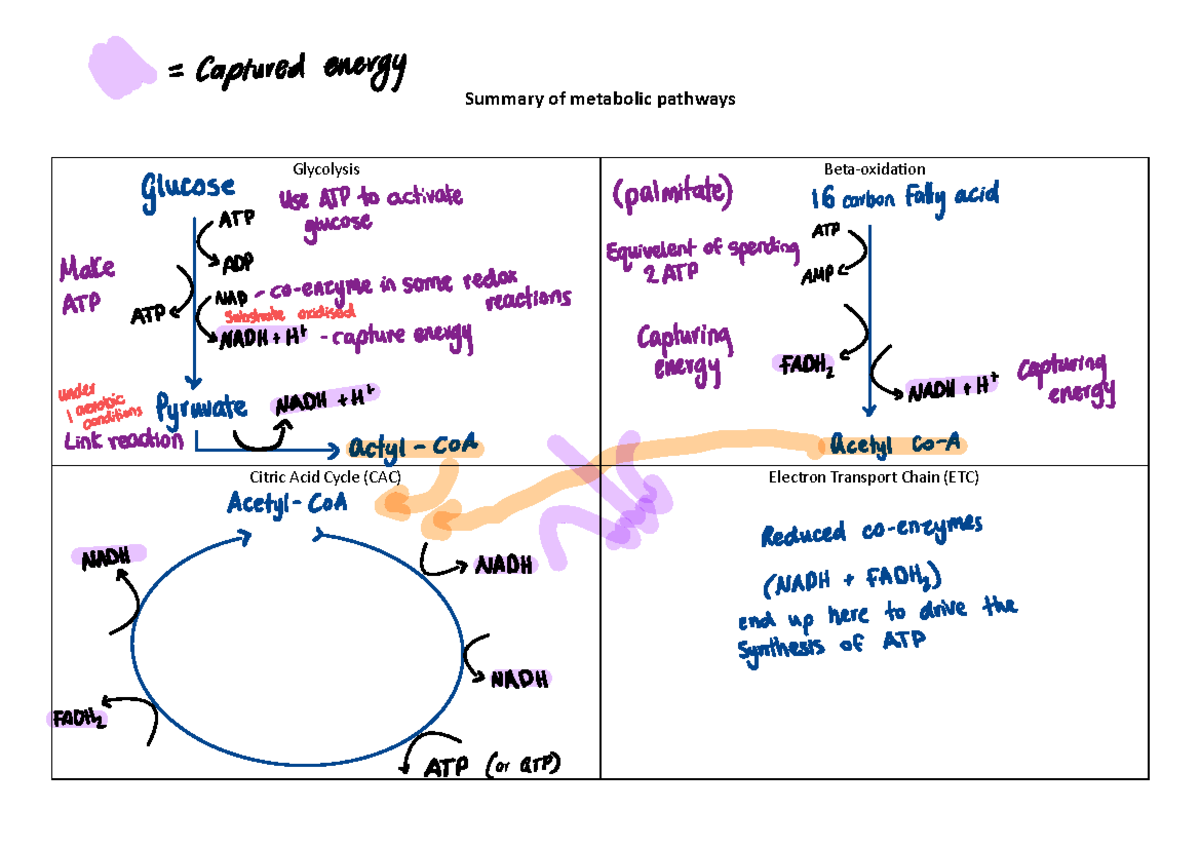 = Captured energy
Summary of metabolic pathways
Glycolysis
Glucose
Use ATP to activate
glucose
ATP
ADP
Make
ATP
ATP
NAD - co-enzyme in some redox
reactions
Substrate oxidised
NADH + H+ - capture energy
under
aerobic
conditions
Pyruvate
NADH + H+
Link reaction
actyl - CoA
Beta-oxidation
(palmitate)
16 carbon fatty acid
ATP
Equivelent of spending
2 ATP
AMP
Capturing
energy
FADH2
NADH + H+
Capturing
energy
Acetyl Co-A
Citric Acid Cycle (CAC)
Acetyl-CoA
NADH
NADH
NADH
FADH2
ATP (or GTP)
Electron Transport Chain (ETC)
Reduced co-enzymes
(NADH + FADH2)
end up here to drive the
synthesis of ATP